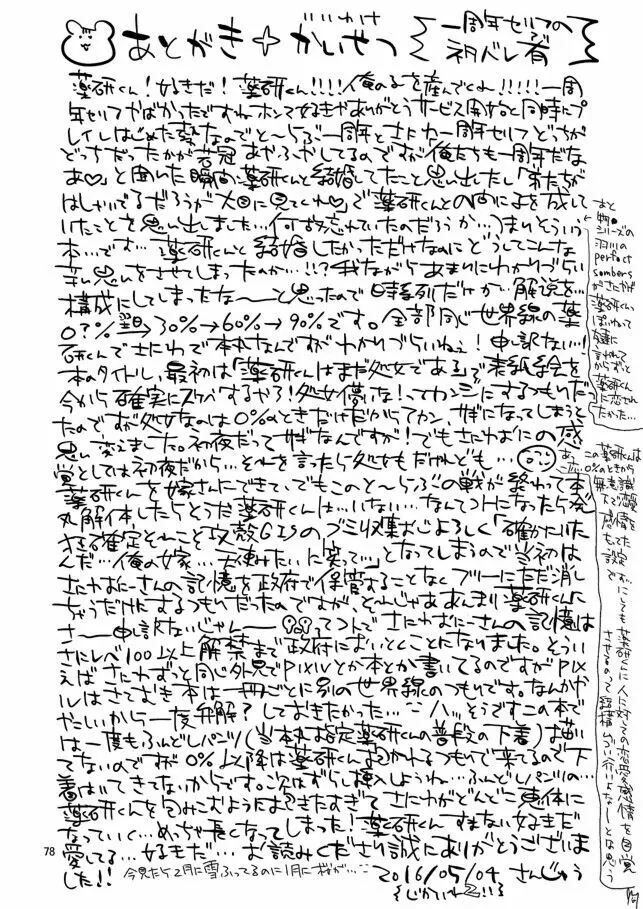 あとがき+かいせつ
一周年セリフの
ネタバレ有
薬研くん!好きだ!薬研くん!!!!人俺の子を産んでくれ!!!!!一周
年セリフやばかったですねホンマ好きやありがとうサービス開始と同時にプ
レイしはじめた勢なのでと〜らぶ一周年とさにわ一周年セリフどっちが
どっちだったかが若冠あやふやしてるのですが「俺たちも一周年だな
あ♡」と聞いた瞬間薬研くんと結婚してたこと思い出したし「新たが
はしゃいでるだろうが大目に見てくれ♡」で薬研くんとの間に子を成して
いたことを思い出しました…(何故忘れていたのだろうか…)まぁそういう
本…です…薬研くんと結婚したかっただけなのにどうしてこんな
辛い思いをさせてしまったのか…!!?我ながらあまりにわかりづらい
構成にしてしまったな〜〜と思ったので時系列だけか…解説を…
0?%→30%→60%→90%です。全部同じ世界線の薬
研くんでさにわで本丸なんですがわかりづらいねぇ!申し訳ない!
本のタイトル、最初は「薬研くんはまだ処女である」で表紙絵を
今から確実にスケベするやろ!処女儚いな!ってカンジにするつもりだっ
たのですが処女なのは0%のときだけだからアカン サギになってしまうと
思い変えました。初夜だってサギなんですが!でもさにわにの感
覚としては初夜だから…それを言ったら処女もだけれども…
薬研くんを嫁さんにできて、でもこのと〜らぶの戦が終わって本
丸解体したらとうた薬研くんは…いない…なんてコトになったら発
狂する確定それこそ攻殻GISのゴミ収集おじよろしく「確かにいた
んだ…俺の嫁…天使みたいに笑って…」となってしまうので当初は
さにわおにーさんの記憶を政府で保管することなくフツーにただ消し
ちゃうだけにするつもりだったのですが、それじゃああんまり薬研くんに
さ〜〜申し訳ないじゃん〜〜ってコトでさにわおにーさんの記憶は
さにレベ100以上解禁まで政府においとくことになりました。そうい
えばさにわずっと同じ外見でpixivとか本とか書いてるのですがpix
ルはさておき本は一冊ごとに別の世界線のつもりです。なんかや
やこしいから一度弁解?しておきたかった…ハッそうですこの本で
は一度もふんどしパンツ(当本丸指定薬研くんの普段の下着)描い
てないのですが0%以降は薬研くん抱かれるつもりで来てるので下
着はいてきてないからです。次はずらし挿入しようね…ふんどしパンツの…
薬研くんを包みこむように抱きたすぎてさにわがどんどこ恵体に
なっていく…めっちゃ長くなってしまった!薬研くんすまない好きだ
愛してる…好きだ…お読みくださり誠にありがとうございま
した!!
今見たら2月に雪ふってるのに1月に桜が…
2016/05/04 さんじゅう
あと
シリーズの
perfect
sombers
がさにわが
薬研くんっ
ぽいねって
言われて
からずっと
薬研くん
に恋され
たかった…
あ、この薬研くんは
0%のときから
無意識
なで恋愛
感情を
もってた
設定
です。にしても薬研くんに人に対しての恋愛感情を自覚
させるのって結構つらい行いだよなーとは思う
78